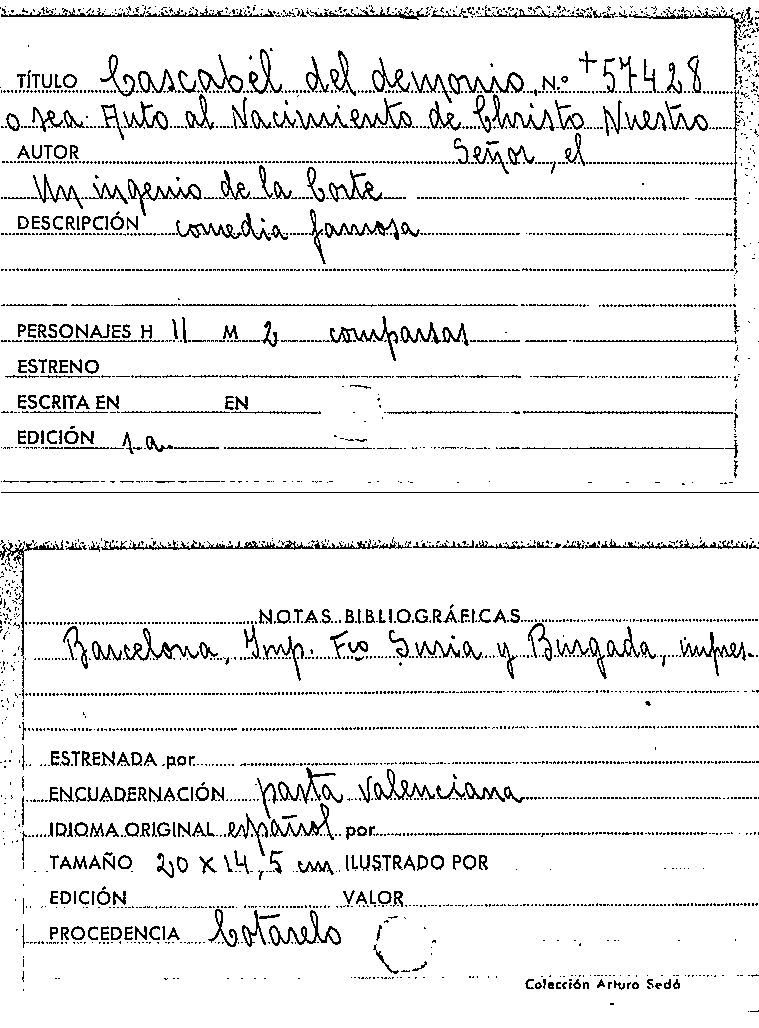 TÍTULO Cascabel del demonio, N.º +57428
o sea: Auto al Nacimiento de Christo Nuestro
AUTOR Señor, el
Un ingenio de la Corte
DESCRIPCIÓN comedia famosa
PERSONAJES H 11 M 2 comparsas
ESTRENO
ESCRITA EN EN
EDICIÓN s.a.
NOTAS BIBLIOGRÁFICAS
Barcelona, Imp. Fco Suria y Burgada, impres.
ESTRENADA por
ENCUADERNACIÓN pasta valenciana
IDIOMA ORIGINAL español por
TAMAÑO 20 x 14,5 cm ILUSTRADO POR
EDICIÓN VALOR
PROCEDENCIA Cotarelo
Colección Arturo Sedó